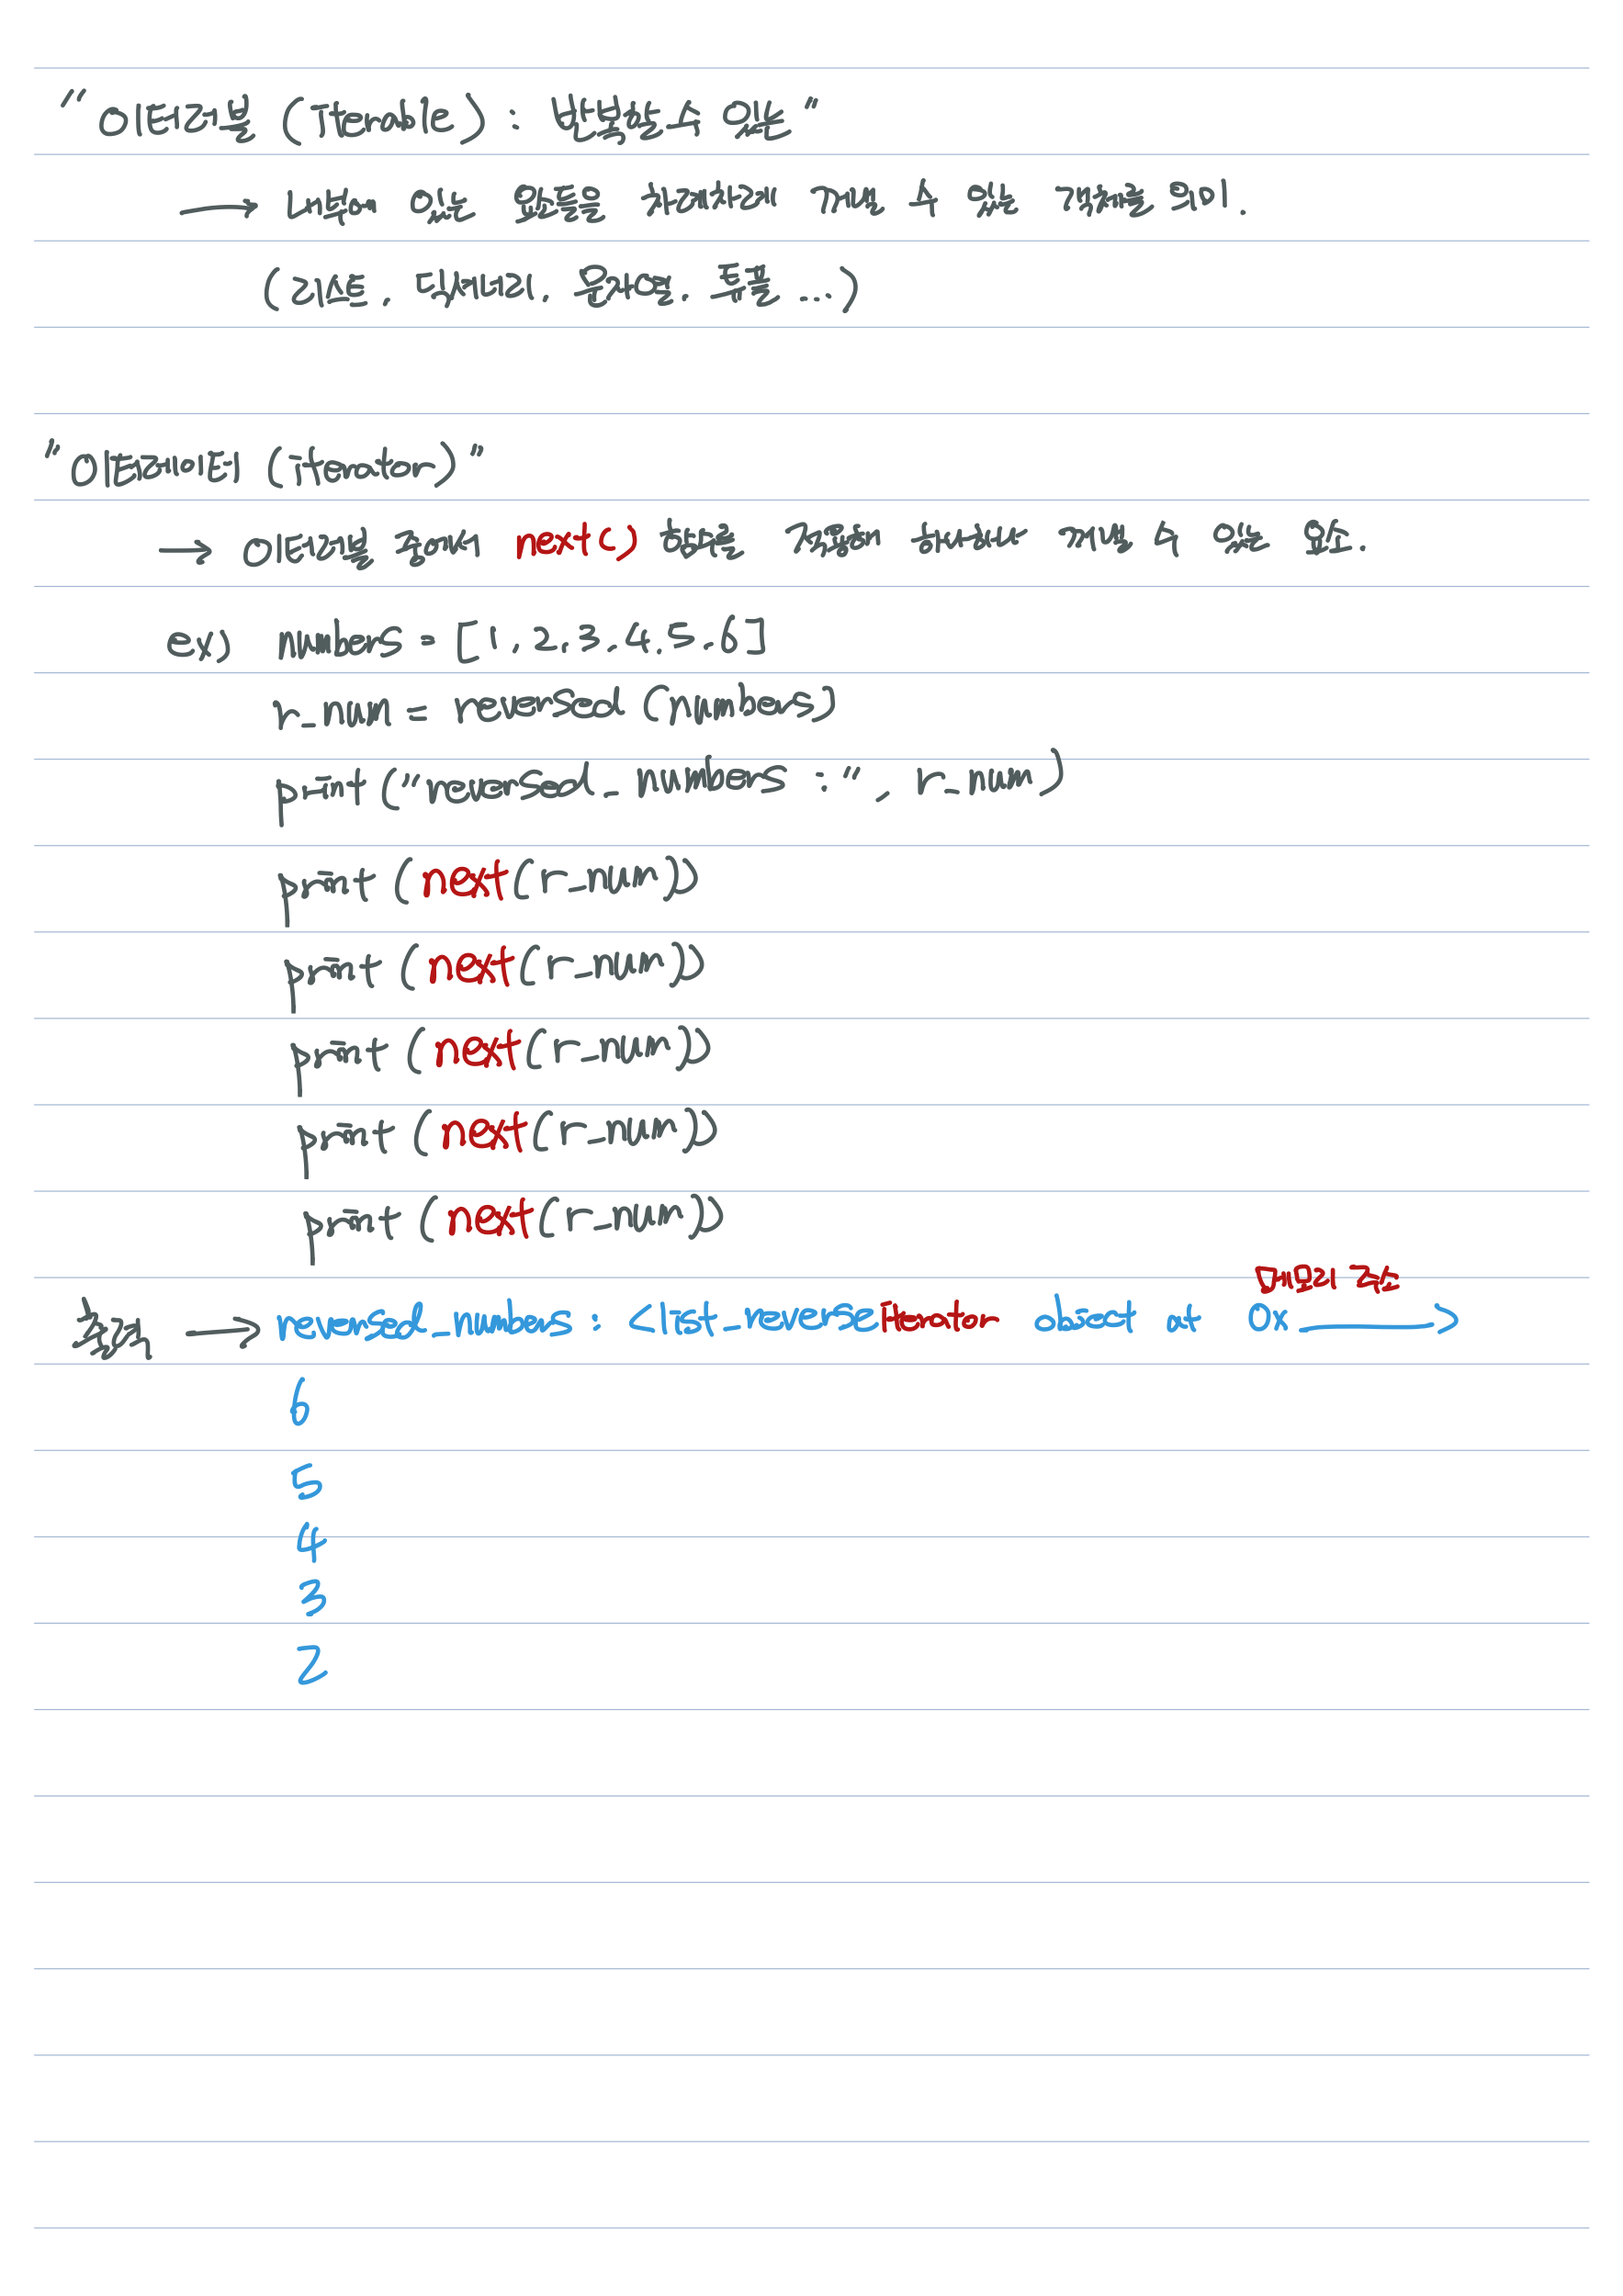 "이터러블 (iterable) : 반복할 수 있는"
→ 내부에 있는 요소들을 차례차례 꺼낼 수 있는 객체를 의미.
(리스트, 딕셔너리, 문자열, 튜플 ...)
"이터레이터 (iterator)"
→ 이터러블 중에서 next() 함수를 적용해 하나하나 꺼낼 수 있는 요소.
ex) numbers = [1, 2, 3, 4, 5, 6]
r_num = reversed (numbers)
print ("reversed_numbers :", r_num)
print (next(r_num))
print (next(r_num))
print (next(r_num))
print (next(r_num))
print (next(r_num))
메모리 주소
출력 → reversed_numbers : <list_reverseiterator object at 0x >
6
5
4
3
2